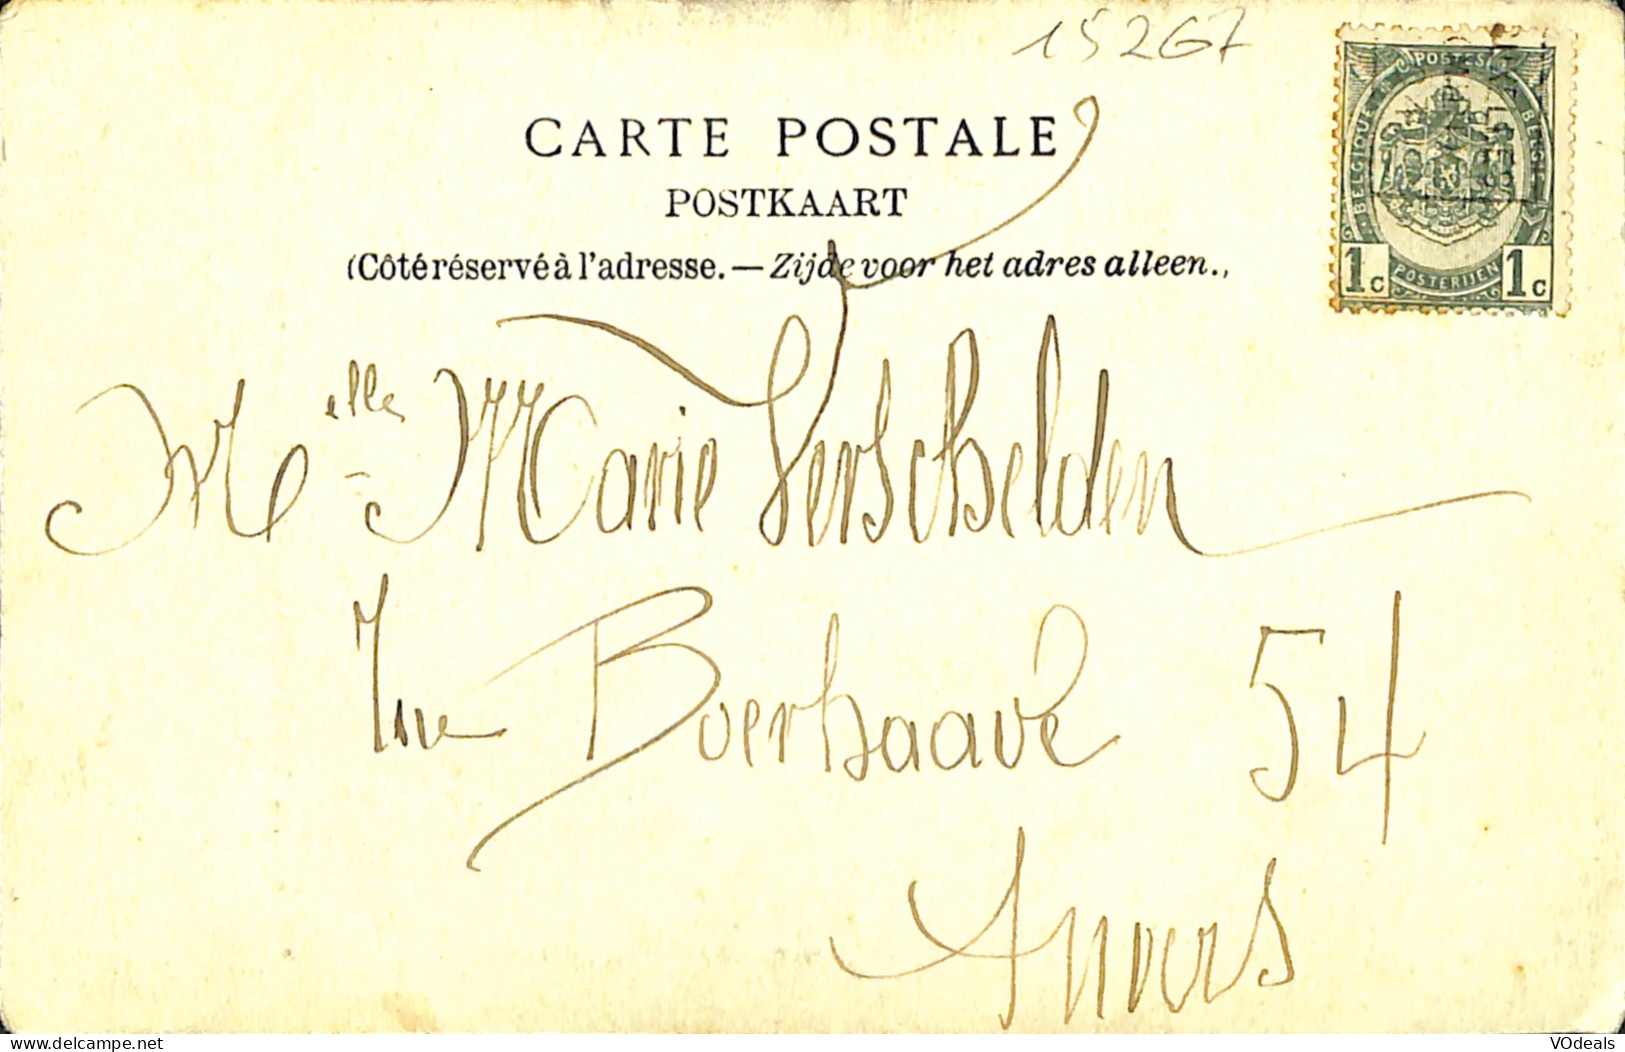 15267
CARTE POSTALE
POSTKAART
(Côté réservé à l'adresse. — Zijde voor het adres alleen.,
BELGIQUE POSTES BELGIË
1c POSTERIJEN 1c
Melle Marie Verschelden
Rue Boerhaave 54
Anvers
VOdeals